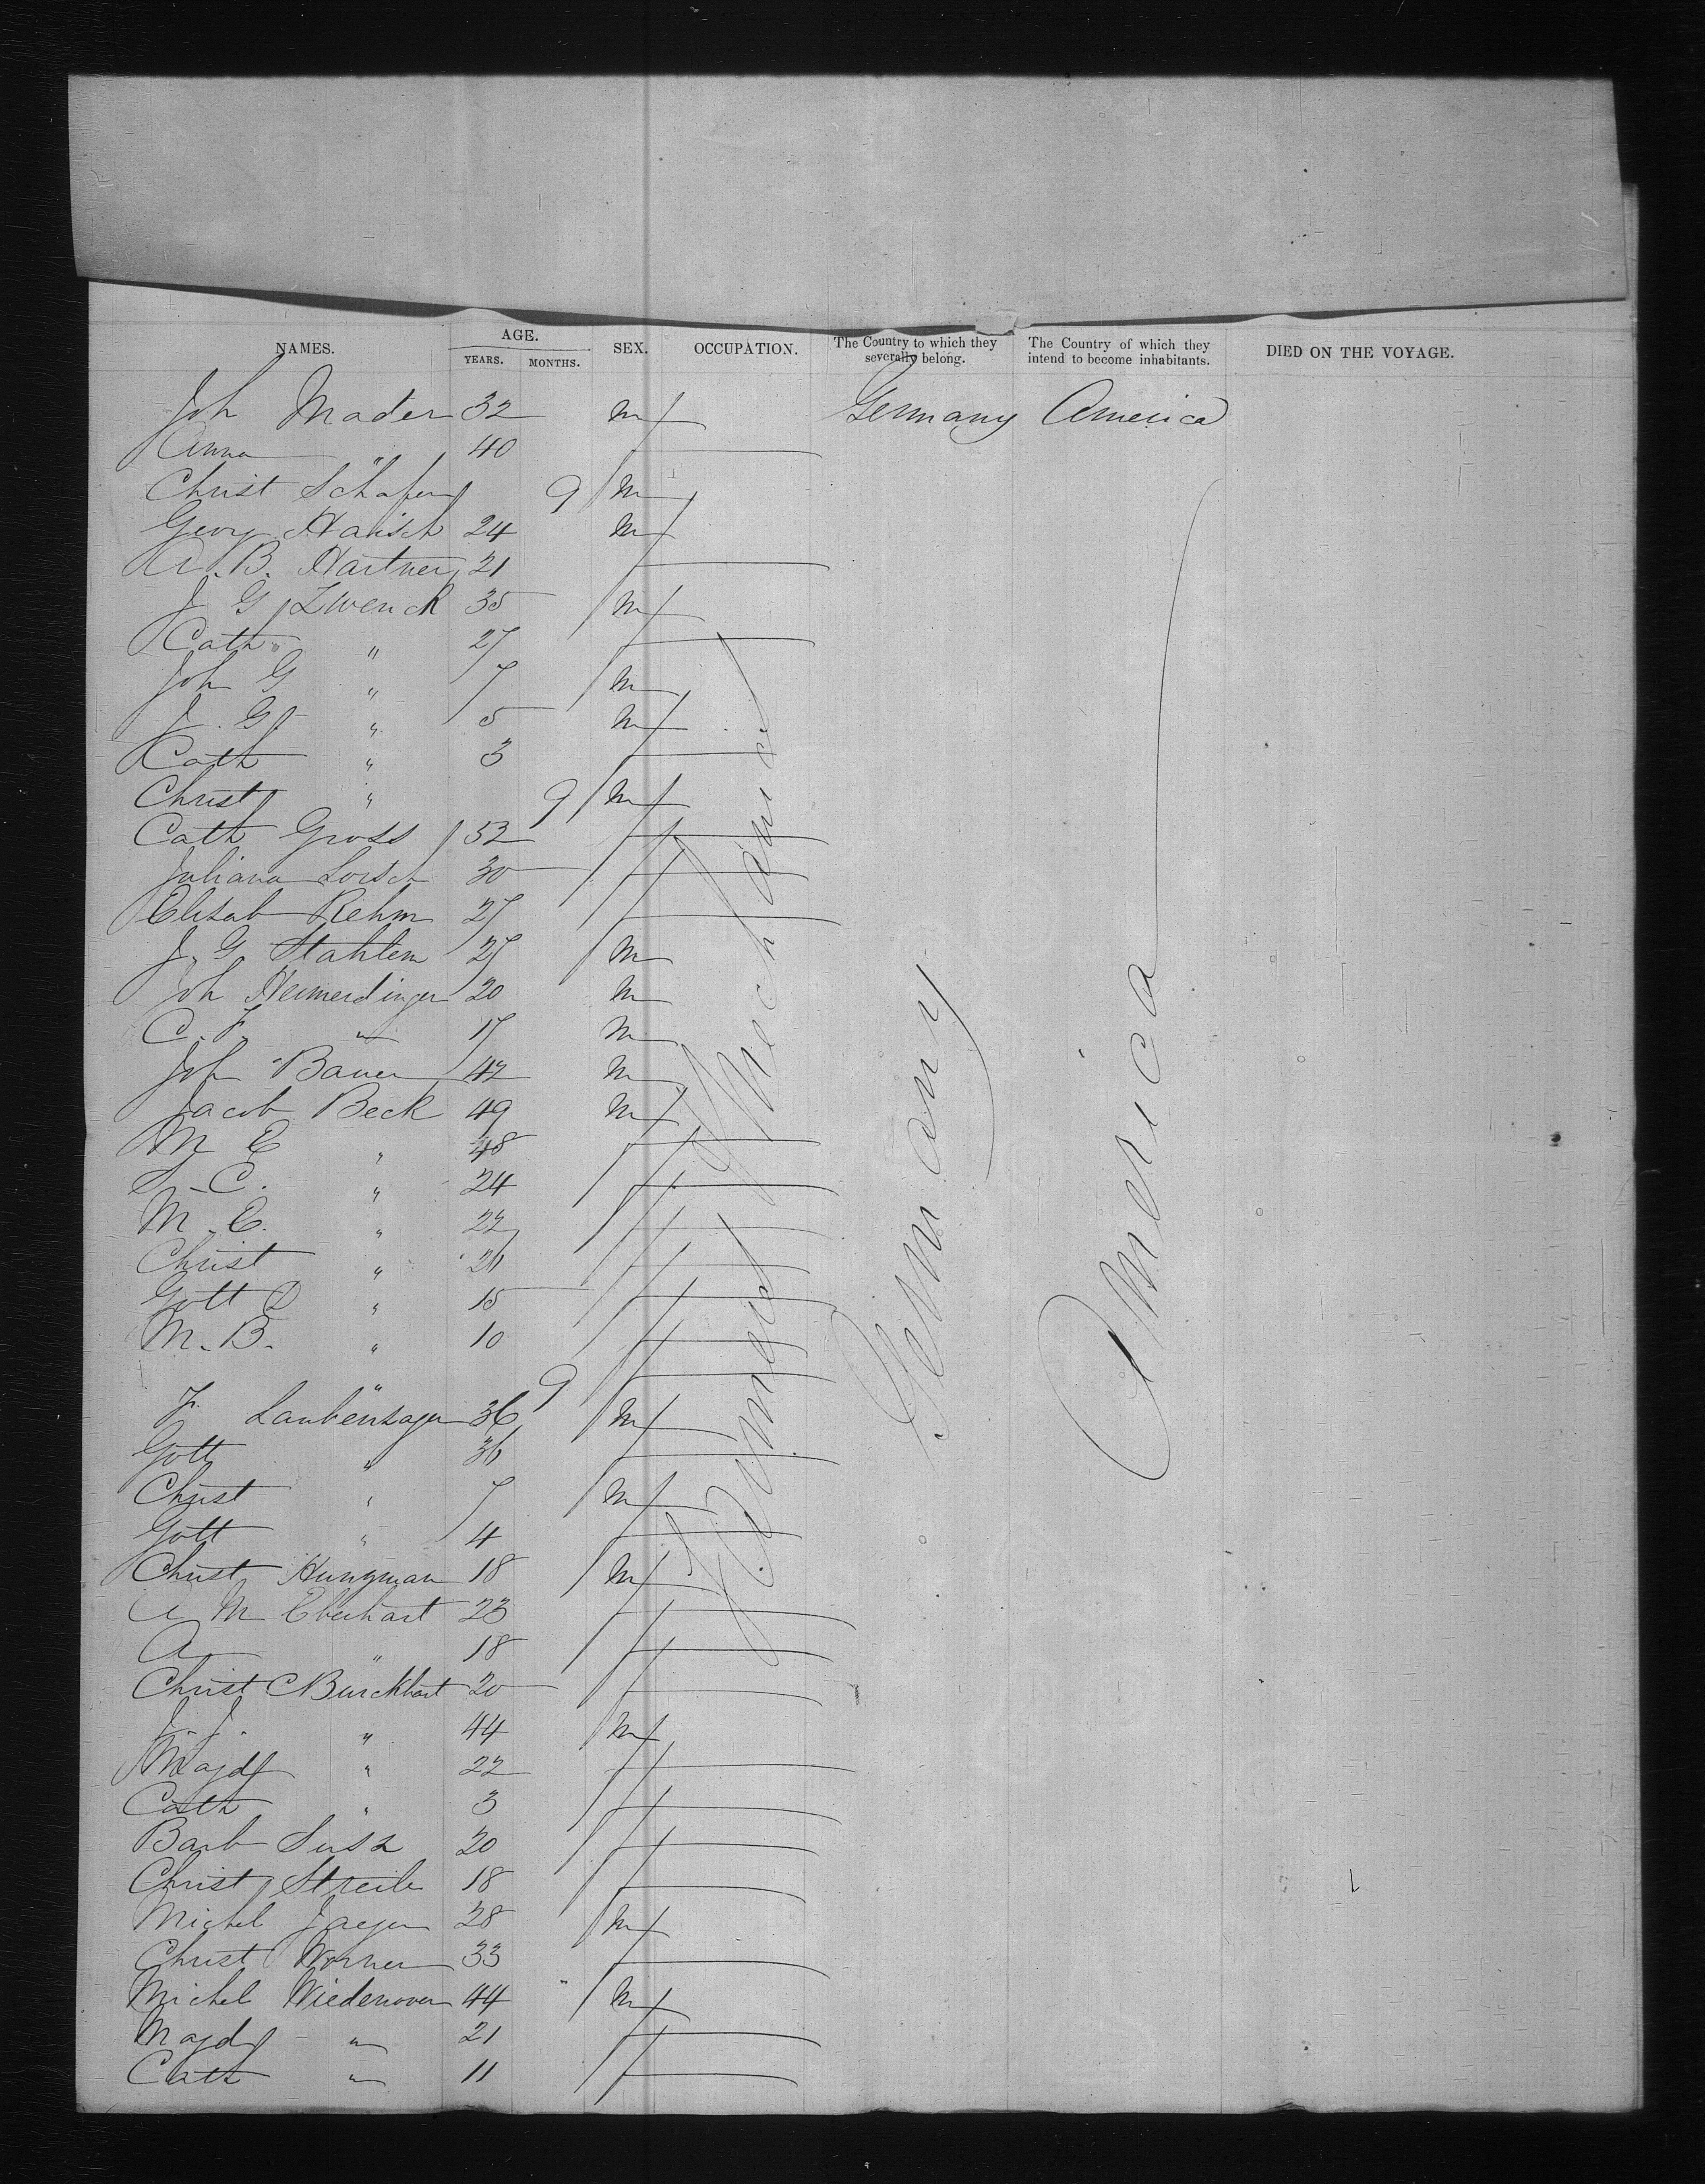 NAMES. AGE. YEARS. MONTHS. SEX. OCCUPATION. The Country to which they severally belong. The Country of which they intend to become inhabitants. DIED ON THE VOYAGE.
Joh Mader 32 m Germany America
Anna " 40 f
Christ Schafer 9 m
Georg Hanisch 24 m
A. B. Hartner 21 f
J G Zwenck 35 m
Cath " 27 f
Joh G " 7 m
J. G " 5 m
Cath " 3 f
Christ " 9 m
Cath Gross 52 f
Juliana Lorsch 30 f
Elisab Rehm 27 f
J. G. Stahlem 27 m
Joh Heimerdinger 20 m
C. F. " 17 m
Joh Bauer 42 m
Jacob Beck 49 m
M E " 48 f
S. C. " 24 f
M. E. " 22 f
Christ " 21 f
Gott D " 15 f
M. B. " 10 f
" 9 f
F. Laubensager 36 m
Gott " 36 f
Christ " 7 m
Gott " 4 f
Christ Hungman 18 m
A M Eberhart 23 f
A " 18 f
Christ C Burckhart 20 f
J. J. " 44 m
Magd " 22 f
Cath " 3 f
Barb Suss 20 f
Christ Streile 18 f
Michel Jaeger 28 m
Christ Worner 33 f
Michel Wiedenover 44 m
Magd " 21 f
Cath " 11 f
Farmers Mechanics
Germany
America